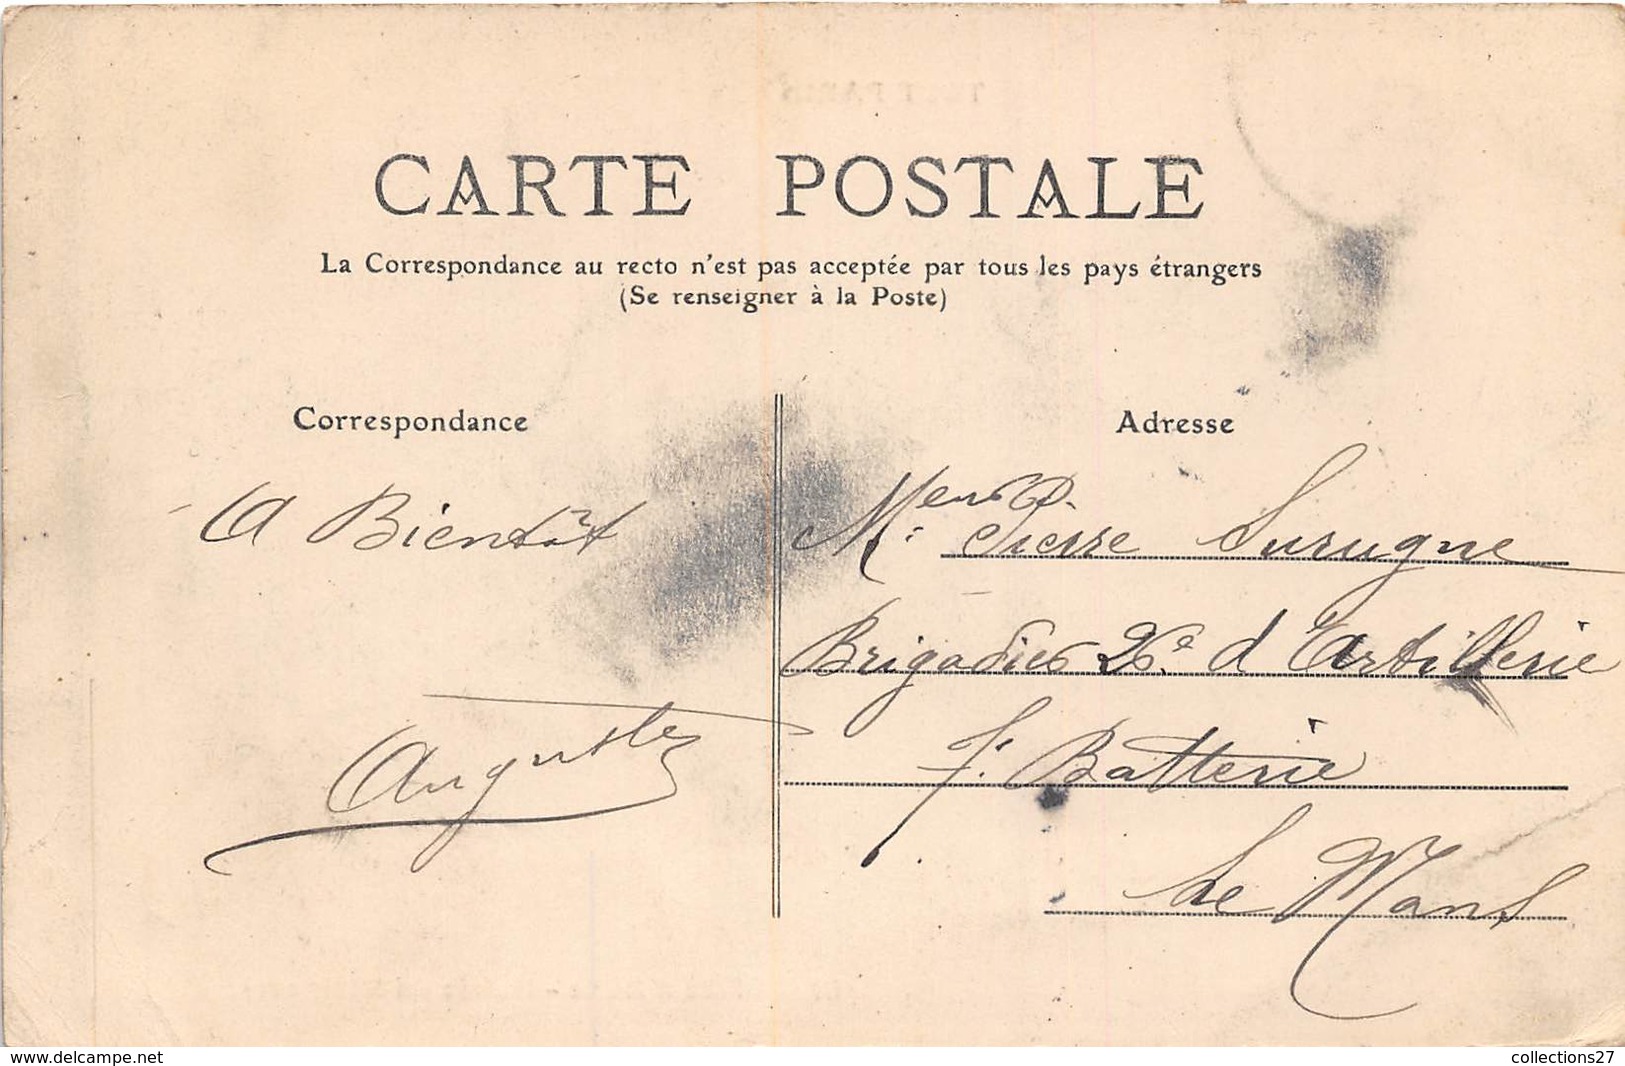 CARTE POSTALE
La Correspondance au recto n'est pas acceptée par tous les pays étrangers
(Se renseigner à la Poste)
Correspondance
A Bientôt
Auguste
Adresse
Pierre Surugne
Brigadier 26e d'Artillerie
7. Batterie
Le Mans
www.delcampe.net
collections27